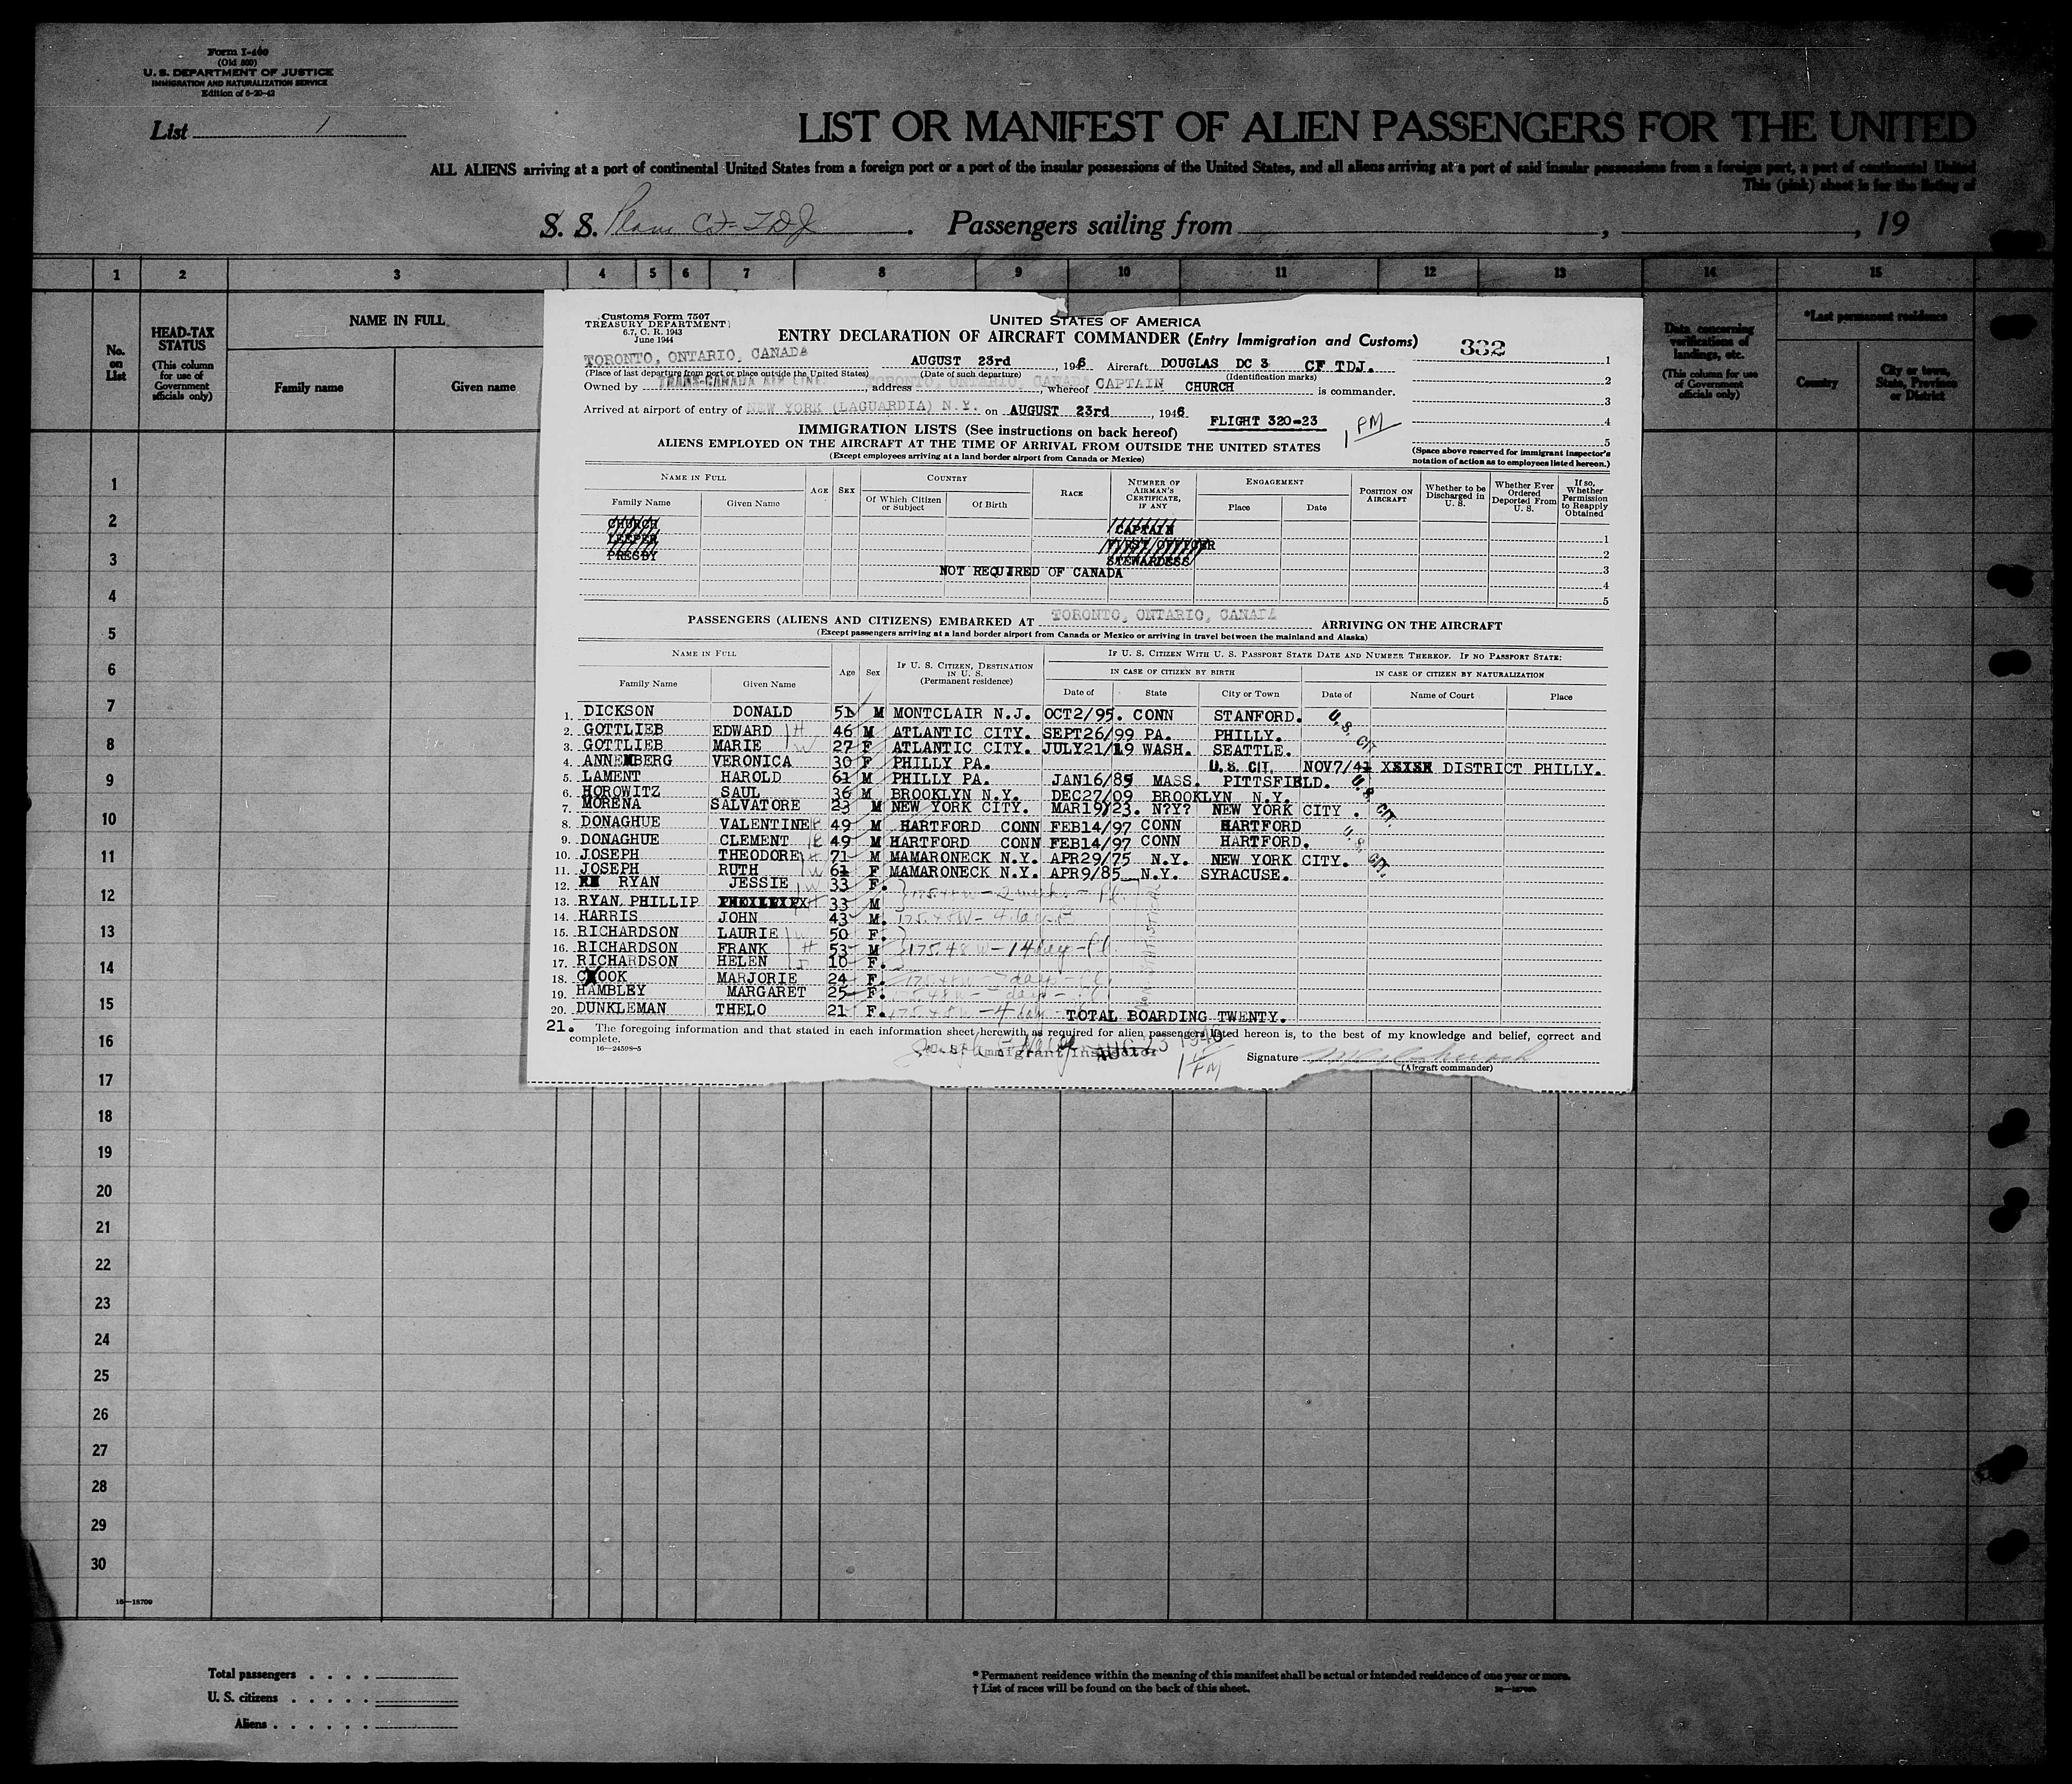 Form I-400
(Old 500)
U. S. DEPARTMENT OF JUSTICE
IMMIGRATION AND NATURALIZATION SERVICE
Edition of 6-20-42
List 1
LIST OR MANIFEST OF ALIEN PASSENGERS FOR THE UNITED
ALL ALIENS arriving at a port of continental United States from a foreign port or a port of the insular possessions of the United States, and all aliens arriving at a port of said insular possessions from a foreign port, a port of continental United
This (pink) sheet is for the listing of
S. S. Plane CF-TDJ. Passengers sailing from , , 19
1 2 3 4 5 6 7 8 9 10 11 12 13 14 15
No. on List
HEAD-TAX STATUS
(This column for use of Government officials only)
NAME IN FULL
Family name Given name
Data concerning verifications of landings, etc.
(This column for use of Government officials only)
*Last permanent residence
Country City or town, State, Province or District
Customs Form 7507
TREASURY DEPARTMENT
6.7, C. R. 1943
June 1944
UNITED STATES OF AMERICA
ENTRY DECLARATION OF AIRCRAFT COMMANDER (Entry Immigration and Customs)
332
TORONTO, ONTARIO, CANADA AUGUST 23rd, 1946 Aircraft DOUGLAS DC 3 CF TDJ.
(Place of last departure from port or place outside the United States) (Date of such departure) (Identification marks)
Owned by TRANS-CANADA AIR LINE, address TORONTO, ONTARIO, CANADA, whereof CAPTAIN CHURCH is commander.
Arrived at airport of entry of NEW YORK (LAGUARDIA) N.Y. on AUGUST 23rd, 1946 FLIGHT 320-23 1 PM
1
2
3
4
5
(Space above reserved for immigrant inspector's notation of action as to employees listed hereon.)
IMMIGRATION LISTS (See instructions on back hereof)
ALIENS EMPLOYED ON THE AIRCRAFT AT THE TIME OF ARRIVAL FROM OUTSIDE THE UNITED STATES
(Except employees arriving at a land border airport from Canada or Mexico)
NAME IN FULL AGE SEX COUNTRY RACE NUMBER OF AIRMAN'S CERTIFICATE, IF ANY ENGAGEMENT POSITION ON AIRCRAFT Whether to be Discharged in U. S. Whether Ever Ordered Deported From U. S. If so, Whether Permission to Reapply Obtained
Family Name Given Name Of Which Citizen or Subject Of Birth Place Date
CHURCH CAPTAIN
LEEPER FIRST OFFICER 1
PRESBY STEWARDESS 2
NOT REQUIRED OF CANADA 3
4
5
PASSENGERS (ALIENS AND CITIZENS) EMBARKED AT TORONTO, ONTARIO, CANADA ARRIVING ON THE AIRCRAFT
(Except passengers arriving at a land border airport from Canada or Mexico or arriving in travel between the mainland and Alaska)
NAME IN FULL Age Sex IF U. S. CITIZEN, DESTINATION IN U. S. (Permanent residence) IF U. S. CITIZEN WITH U. S. PASSPORT STATE DATE AND NUMBER THEREOF. IF NO PASSPORT STATE:
IN CASE OF CITIZEN BY BIRTH IN CASE OF CITIZEN BY NATURALIZATION
Family Name Given Name Date of State City or Town Date of Name of Court Place
1. DICKSON DONALD 51 M MONTCLAIR N.J. OCT2/95. CONN STANFORD. U.S. CIT.
2. GOTTLIEB EDWARD H 46 M ATLANTIC CITY. SEPT26/99 PA. PHILLY.
3. GOTTLIEB MARIE W 27 F ATLANTIC CITY. JULY21/19 WASH. SEATTLE.
4. ANNEMBERG VERONICA 30 F PHILLY PA. U.S. CIT. NOV7/41 DISTRICT PHILLY.
5. LAMENT HAROLD 61 M PHILLY PA. JAN16/85 MASS. PITTSFIELD. U.S. CIT.
6. HOROWITZ SAUL 36 M BROOKLYN N.Y. DEC27/09 BROOKLYN N.Y.
7. MORENA SALVATORE 23 M NEW YORK CITY. MAR19/23. N?Y? NEW YORK CITY .
8. DONAGHUE VALENTINE 49 M HARTFORD CONN FEB14/97 CONN HARTFORD U.S. CIT.
9. DONAGHUE CLEMENT 49 M HARTFORD CONN FEB14/97 CONN HARTFORD.
10. JOSEPH THEODORE H 71 M MAMARONECK N.Y. APR29/75 N.Y. NEW YORK CITY.
11. JOSEPH RUTH W 61 F MAMARONECK N.Y. APR9/85 N.Y. SYRACUSE.
12. RYAN JESSIE W 33 F. 175.48W - 2 weeks - fl.
13. RYAN PHILLIP H 33 M
14. HARRIS JOHN 43 M. 175.48W - 4 days
15. RICHARDSON LAURIE W 50 F.
16. RICHARDSON FRANK H 53 M 175.48W - 14 day - fl.
17. RICHARDSON HELEN 10 F.
18. COOK MARJORIE 24 F.
19. HAMBLEY MARGARET 25 F.
20. DUNKLEMAN THELO 21 F. 175.48W - 4 day TOTAL BOARDING TWENTY.
21. The foregoing information and that stated in each information sheet herewith, as required for alien passengers listed hereon is, to the best of my knowledge and belief, correct and complete.
16—24598-5
U. S. Immigrant Inspector AUG 23 1946 1 PM
Signature Church
(Aircraft commander)
1
2
3
4
5
6
7
8
9
10
11
12
13
14
15
16
17
18
19
20
21
22
23
24
25
26
27
28
29
30
16—18709
Total passengers . . . .
U. S. citizens . . . . .
Aliens . . . . . .
* Permanent residence within the meaning of this manifest shall be actual or intended residence of one year or more.
† List of races will be found on the back of this sheet.